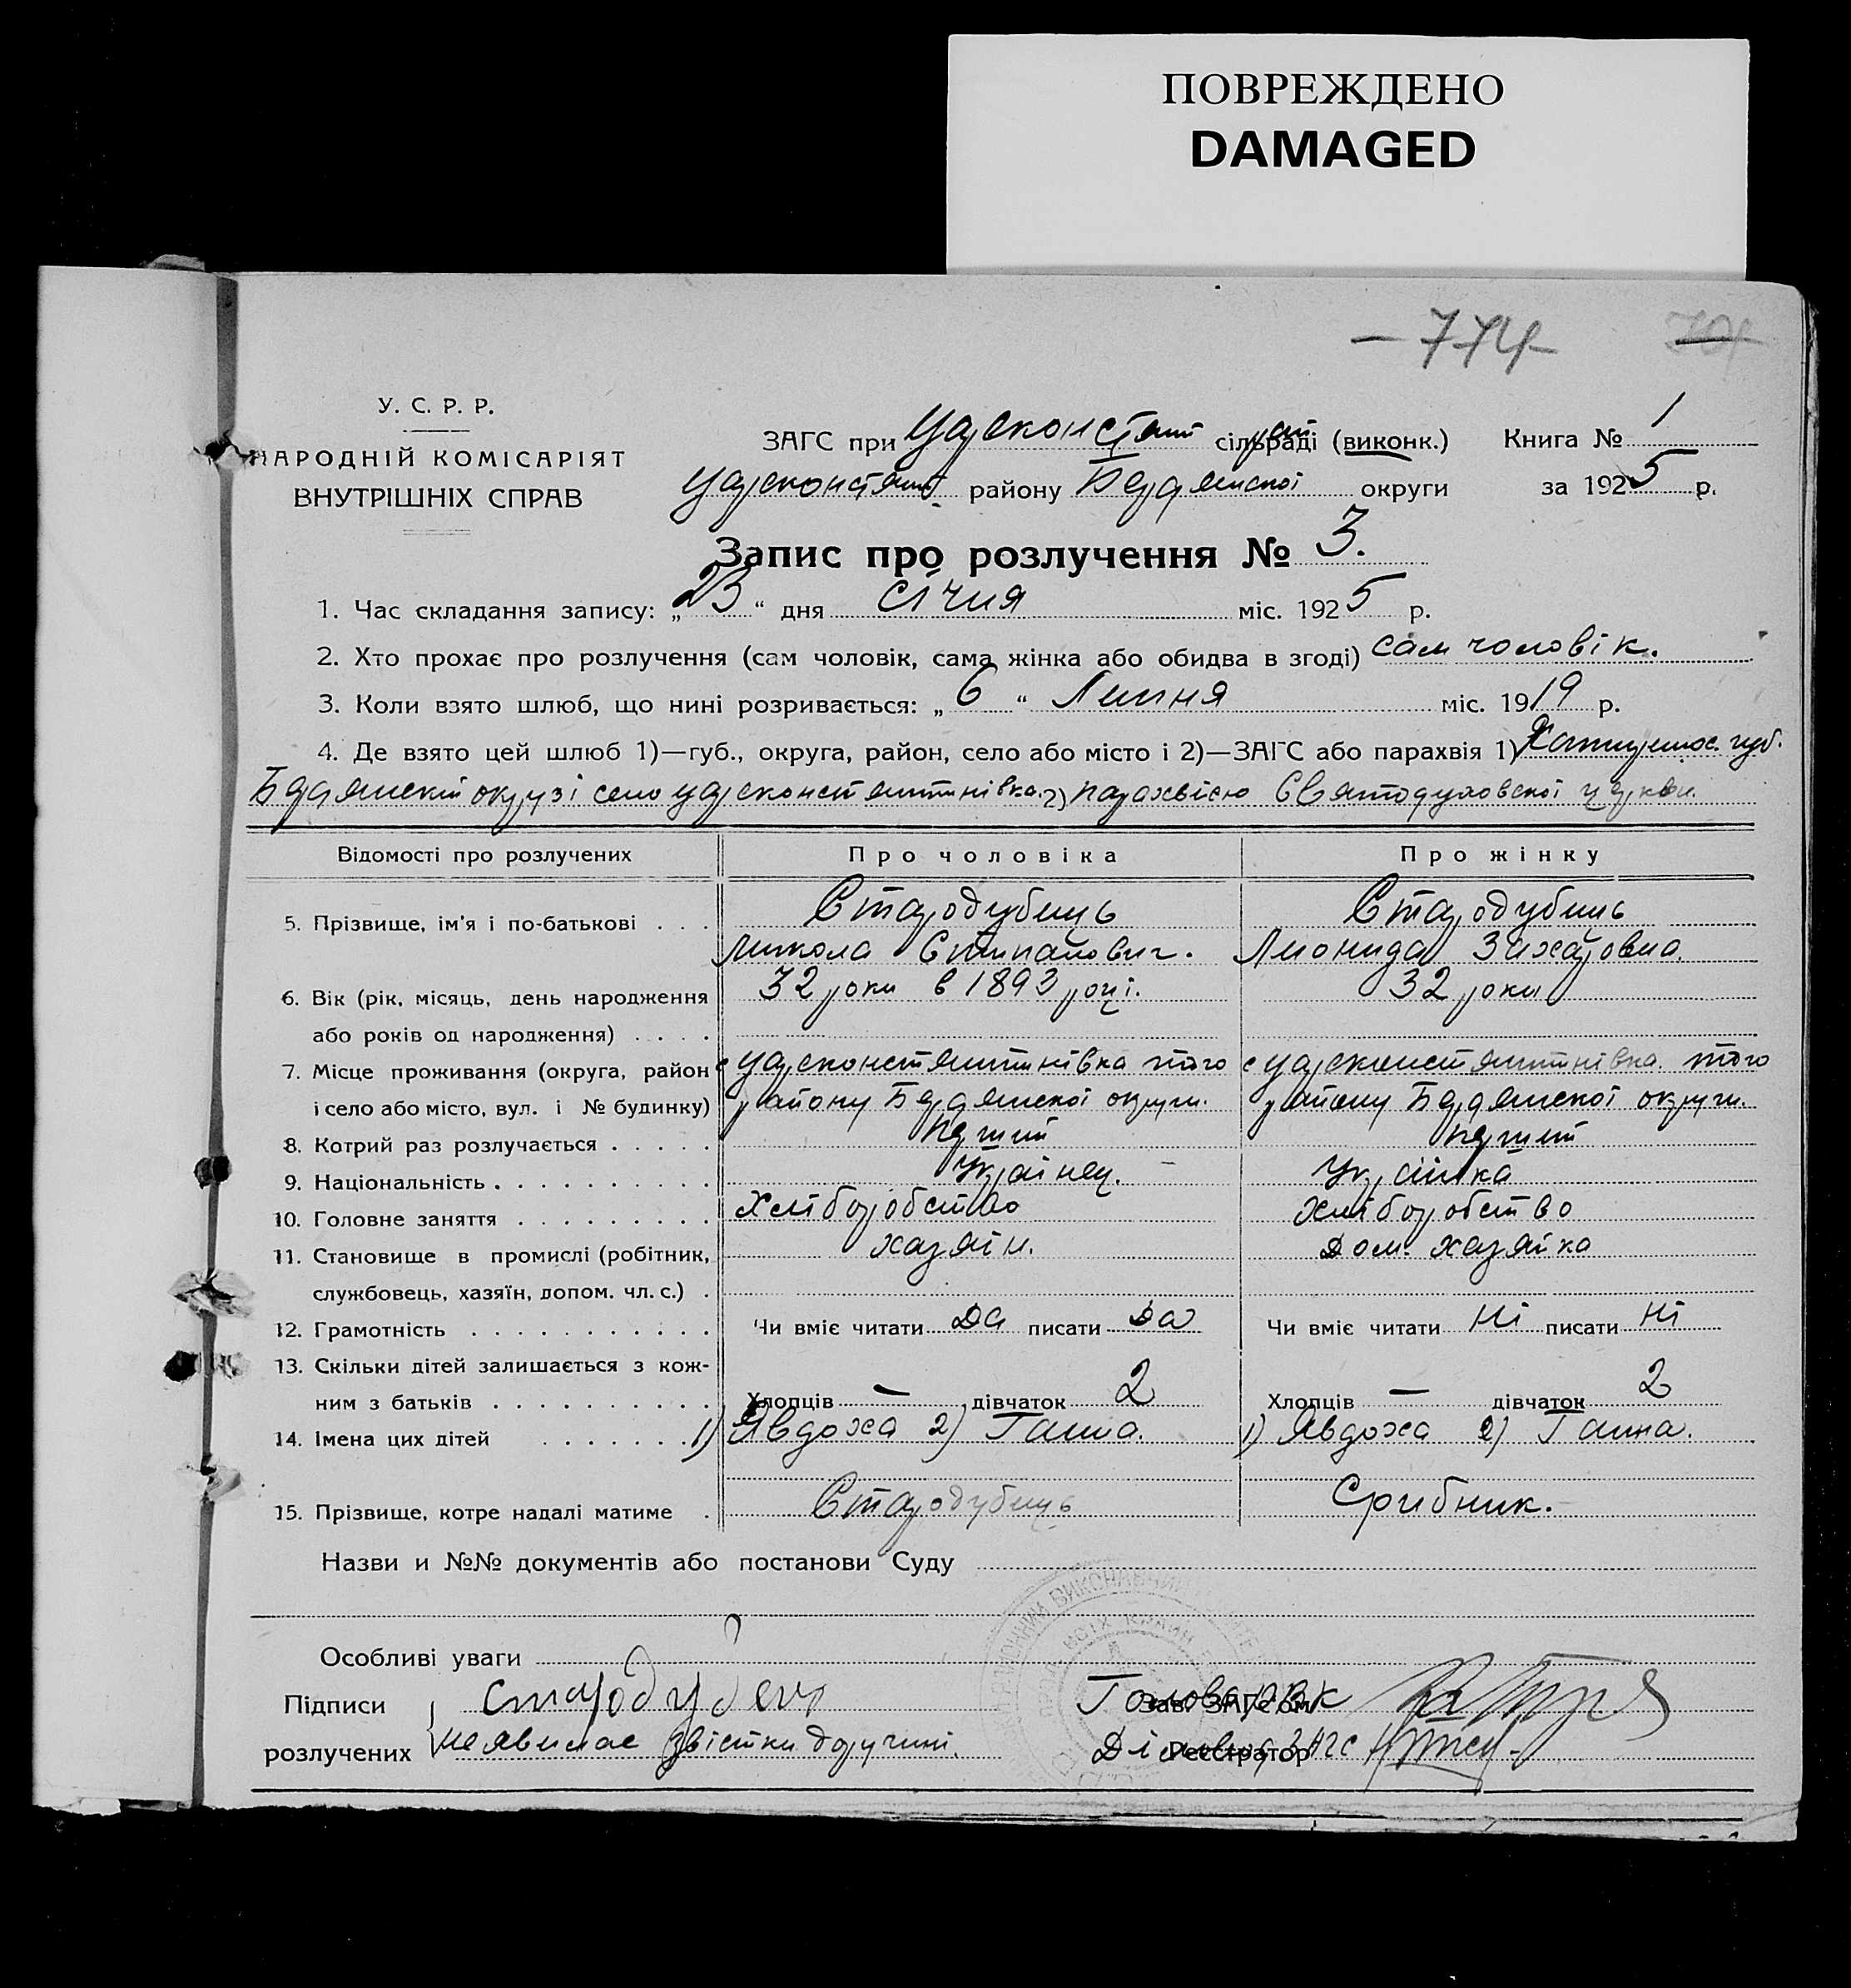 ПОВРЕЖДЕНО
DAMAGED
— 774
У. С. Р. Р.
НАРОДНІЙ КОМІСАРІЯТ
ВНУТРІШНІХ СПРАВ
ЗАГС при Царсконстянт рай сільраді (виконк.) Книга № 1
Царсконстянт району Бердянської округи за 1925 р.
Запис про розлучення № 3.
1. Час складання запису: „23“ дня січня міс. 1925 р.
2. Хто прохає про розлучення (сам чоловік, сама жінка або обидва в згоді) сам чоловік.
3. Коли взято шлюб, що нині розривається: „6“ Липня міс. 1919 р.
4. Де взято цей шлюб 1)—губ., округа, район, село або місто і 2)—ЗАГС або парахвія 1) губ.
Бердянскій окрузі село Царсконстянтинівка. 2) парахвією Святодуховської церкви.
Відомості про розлучених Про чоловіка Про жінку
5. Прізвище, ім'я і по-батькові . . . Стародубець Стародубець
Микола Степанович. Леонида Захаровна.
6. Вік (рік, місяць, день народження 32 роки в 1893 році. 32 роки
або років од народження) . . . .
7. Місце проживання (округа, район с Царсконстянтинівка того с Царсконстянтинівка того
і село або місто, вул. і № будинку) району Бердянської округи. району Бердянської округи.
8. Котрий раз розлучається . . . . . перший перший
9. Національність . . . . . . . . . . Українец. Українка
10. Головне заняття . . . . . . . . . Хліборобство хліборобство
11. Становище в промислі (робітник, хазяїн. дом. хазяйка
службовець, хазяїн, допом. чл. с.) .
12. Грамотність . . . . . . . . . . . Чи вміє читати Да писати Да Чи вміє читати Ні писати Ні
13. Скільки дітей залишається з кож-
ним з батьків . . . . . . . . . . Хлопців — дівчаток 2 Хлопців — дівчаток 2
14. Імена цих дітей . . . . . . . 1) Явдоха 2) Ганна. 1) Явдоха 2) Ганна.
15. Прізвище, котре надалі матиме . Стародубець Срибник.
Назви и №№ документів або постанови Суду
Особливі уваги
Підписи Стародубец Голова РВК Зав. ЗАГС'ом
розлучених не явилас звістки доручені. Діловод ЗАГС Реєстратор